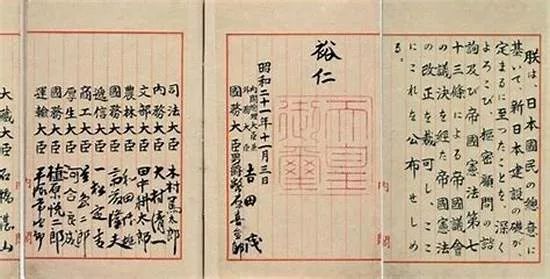 朕は、日本國民の總意に
基いて、新日本建設の礎が、
定まるに至つたことを、深く
よろこび、樞密顧問の諮
詢及び帝國憲法第七
十三條による帝國議會
の議決を経た帝國憲法
の改正を裁可し、ここ
にこれを公布せしめ
る。
内閣
裕仁
天皇御璽
昭和二十一年十一月三日
内閣總理大臣兼
外務大臣 吉田茂
國務大臣 男爵 幣原喜重郎
司法大臣 木村篤太郎
内務大臣 大村清一
文部大臣 田中耕太郎
農林大臣 和田博雄
國務大臣 斎藤隆夫
逓信大臣 一松定吉
商工大臣 星島二郎
厚生大臣 河合良成
國務大臣 植原悦二郎
運輸大臣 平塚常次郎
内閣
大藏大臣 石橋湛山